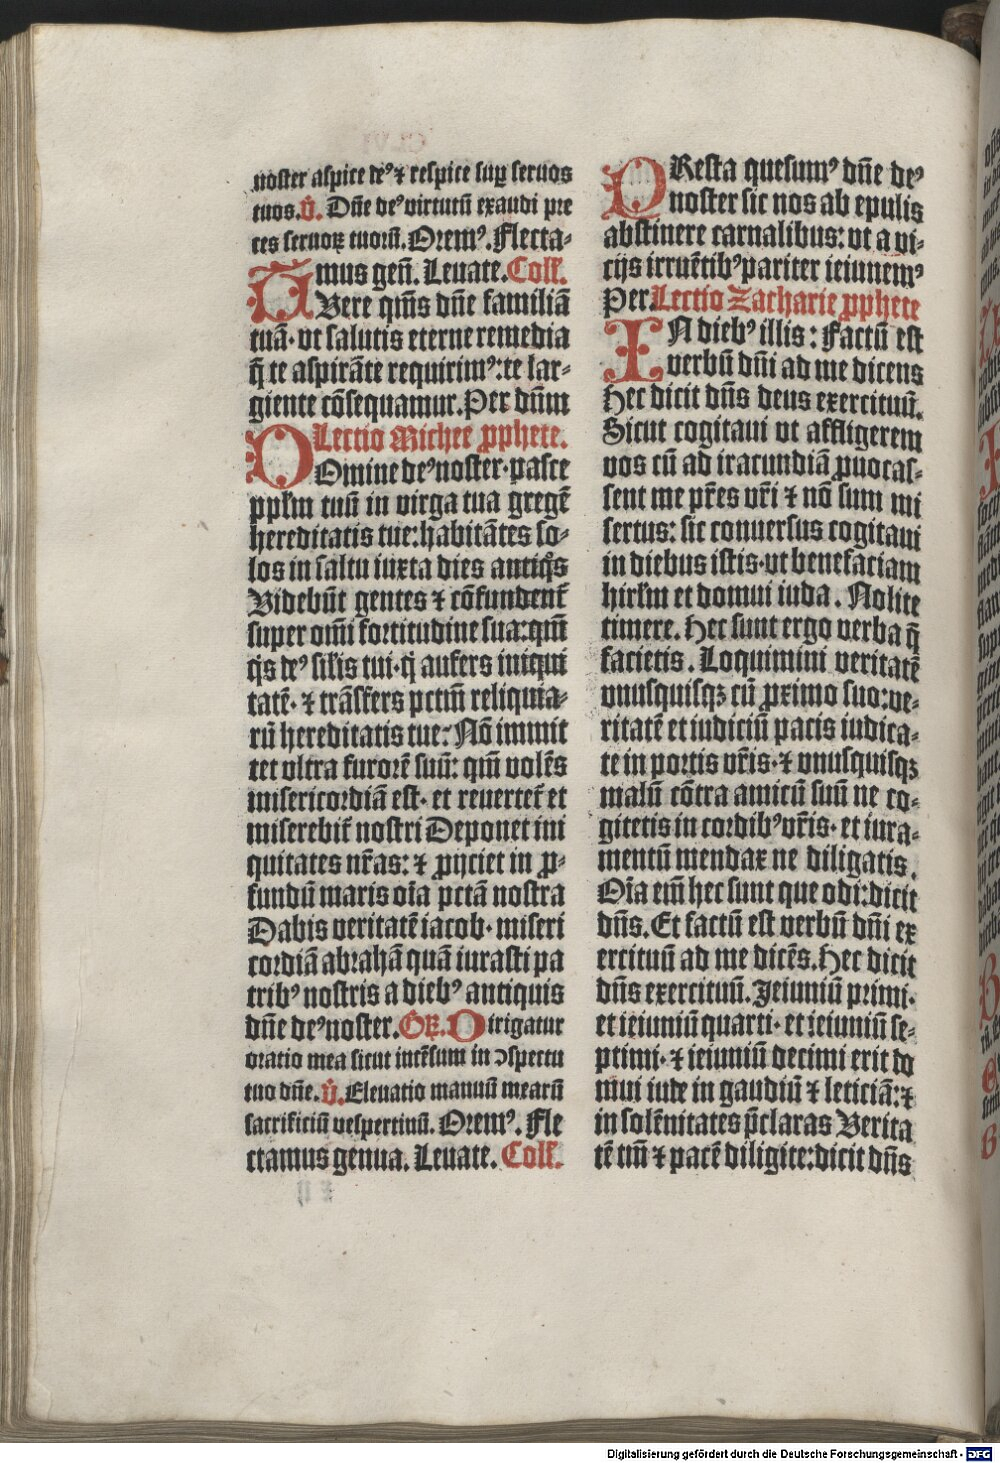 noster aspice deꝰ ⁊ respice suꝑ seruos
tuos. V̄. Dn̄e deꝰ virtutū exaudi pre
ces seruoꝝ tuorū. Oremꝰ. Flecta-
mus gen̄. Leuate. Coll̄.
TUere qm̄s dn̄e familiā
tuā· vt salutis eterne remedia
q̄ te aspirāte requirimꝰ: te lar-
giente cōsequamur. Per dn̄m
Lectio Michee ꝓphete.
DOmine deꝰ noster· pasce
ppl̄m tuū in virga tua gregē
hereditatis tue: habitātes so-
los in saltu iuxta dies antiq̄s
Videbūt gentes ⁊ cōfundent̄
super om̄i fortitudine sua: qm̄
q̄s deꝰ sil̄is tui· q̄ aufers iniqui
tatē· ⁊ trāsfers pctm̄ reliquia-
rū hereditatis tue: Nō immit
tet vltra furorē suū: qm̄ volēs
misericordiā est· et reuertet̄ et
miserebit̄ nostri Deponet ini
quitates nr̄as: ⁊ ꝓijciet in ꝓ-
fundū maris oīa pctā nostra
Dabis veritatē iacob· miseri
cordiā abrahā quā iurasti pa
tribꝰ nostris a diebꝰ antiquis
dn̄e deꝰ noster. GR̄. Dirigatur
oratio mea sicut incēsum in ↄspectu
tuo dn̄e. V̄. Eleuatio manuū mearū
sacrificiū vespertinū. Oremꝰ. Fle
ctamus genua. Leuate. Coll̄.
PResta quesumꝰ dn̄e deꝰ
noster sic nos ab epulis
abstinere carnalibus: vt a vi-
cijs irruētibꝰ pariter ieiunemꝰ
Per Lectio Zacharie ꝓphete
IN diebꝰ illis: Factū est
verbū dn̄i ad me dicens
Hec dicit dn̄s deus exercituū.
Sicut cogitaui vt affligerem
vos cū ad iracundiā ꝓuocas-
sent me pr̄es vr̄i ⁊ nō sum mi
sertus: sic conuersus cogitaui
in diebus istis· vt benefaciam
hirl̄m et domui iuda. Nolite
timere. Hec sunt ergo verba q̄
facietis. Loquimini veritatē
vnusquisqꝫ cū ꝓximo suo: ve-
ritatē et iudiciū pacis iudica-
te in portis vr̄is· ⁊ vnusquisqꝫ
malū cōtra amicū suū ne co-
gitetis in cordibꝰ vr̄is· et iura-
mentū mendax ne diligatis.
Oīa em̄ hec sunt que odi: dicit
dn̄s. Et factū est verbū dn̄i ex
ercituū ad me dicēs. Hec dicit
dn̄s exercituū. Jeiuniū primi·
et ieiuniū quarti· et ieiuniū se-
ptimi· ⁊ ieiuniū decimi erit do
mui iude in gaudiū ⁊ leticiā: ⁊
in solēnitates p̄claras Verita
tē tm̄ ⁊ pacē diligite: dicit dn̄s
Digitalisierung gefördert durch die Deutsche Forschungsgemeinschaft - DFG